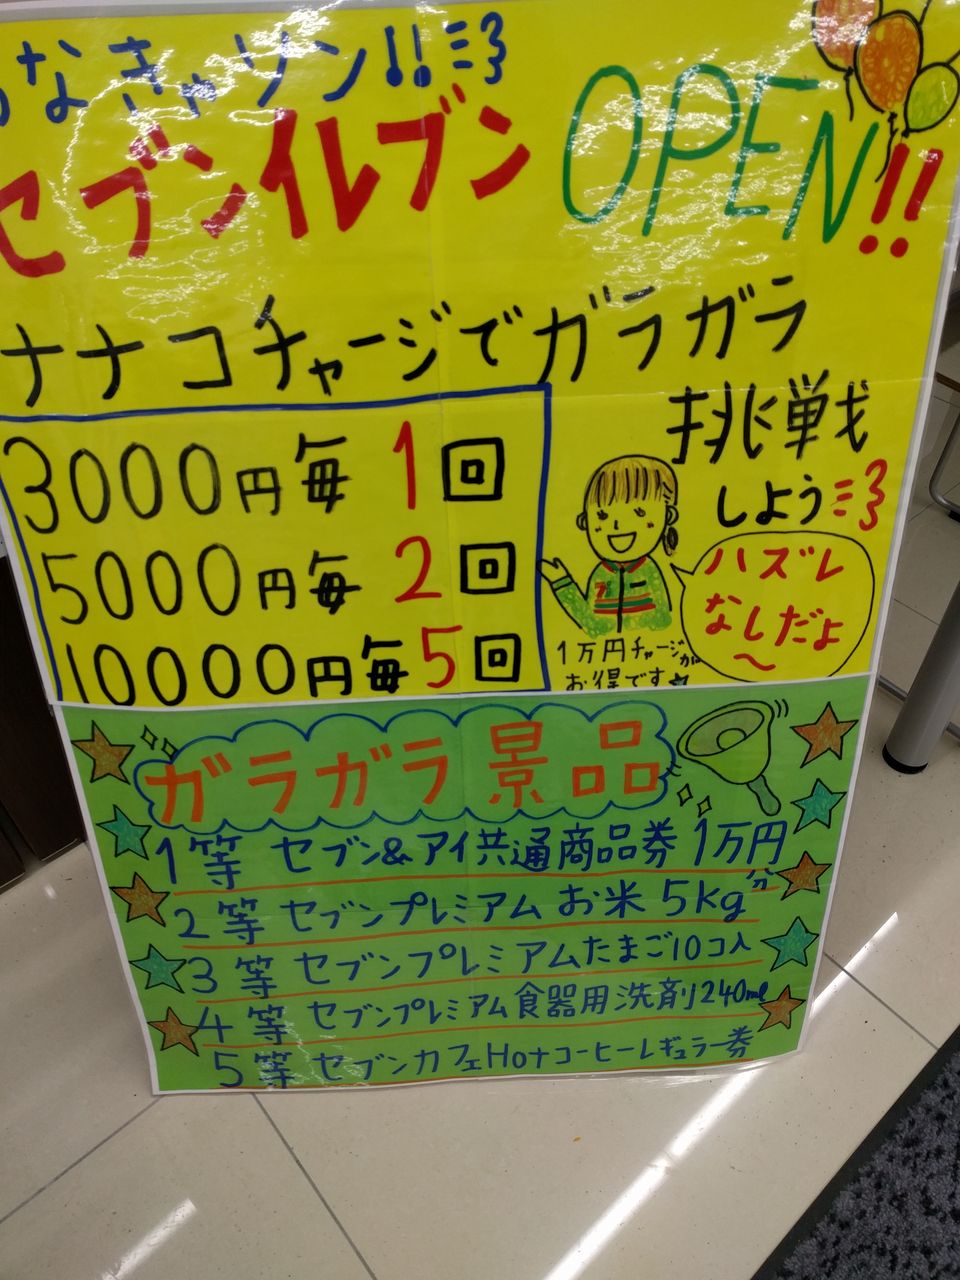 なきゃソン!!
セブンイレブン OPEN!!
ナナコチャージでガラガラ
挑戦
しよう
3000円毎 1回
5000円毎 2回
10000円毎 5回
ハズレ
なしだよ
〜
1万円チャージが
お得です
ガラガラ景品
1等 セブン&アイ共通商品券 1万円分
2等 セブンプレミアム お米 5kg
3等 セブンプレミアムたまご10コ入
4等 セブンプレミアム食器用洗剤240ml
5等 セブンカフェHotコーヒーレギュラー券